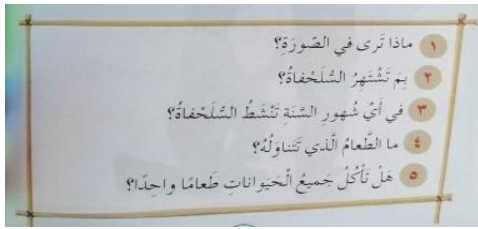 ١ ماذا تَرى في الصّورَةِ؟
٢ بِمَ تَشْتَهِرُ السُّلَحْفاةُ؟
٣ في أَيِّ شُهورِ السَّنَةِ تَنْشَطُ السُّلَحْفاةُ؟
٤ ما الطَّعامُ الَّذي تَتَناوَلُهُ؟
٥ هَلْ تَأْكُلُ جَميعُ الْحَيَواناتِ طَعامًا واحِدًا؟